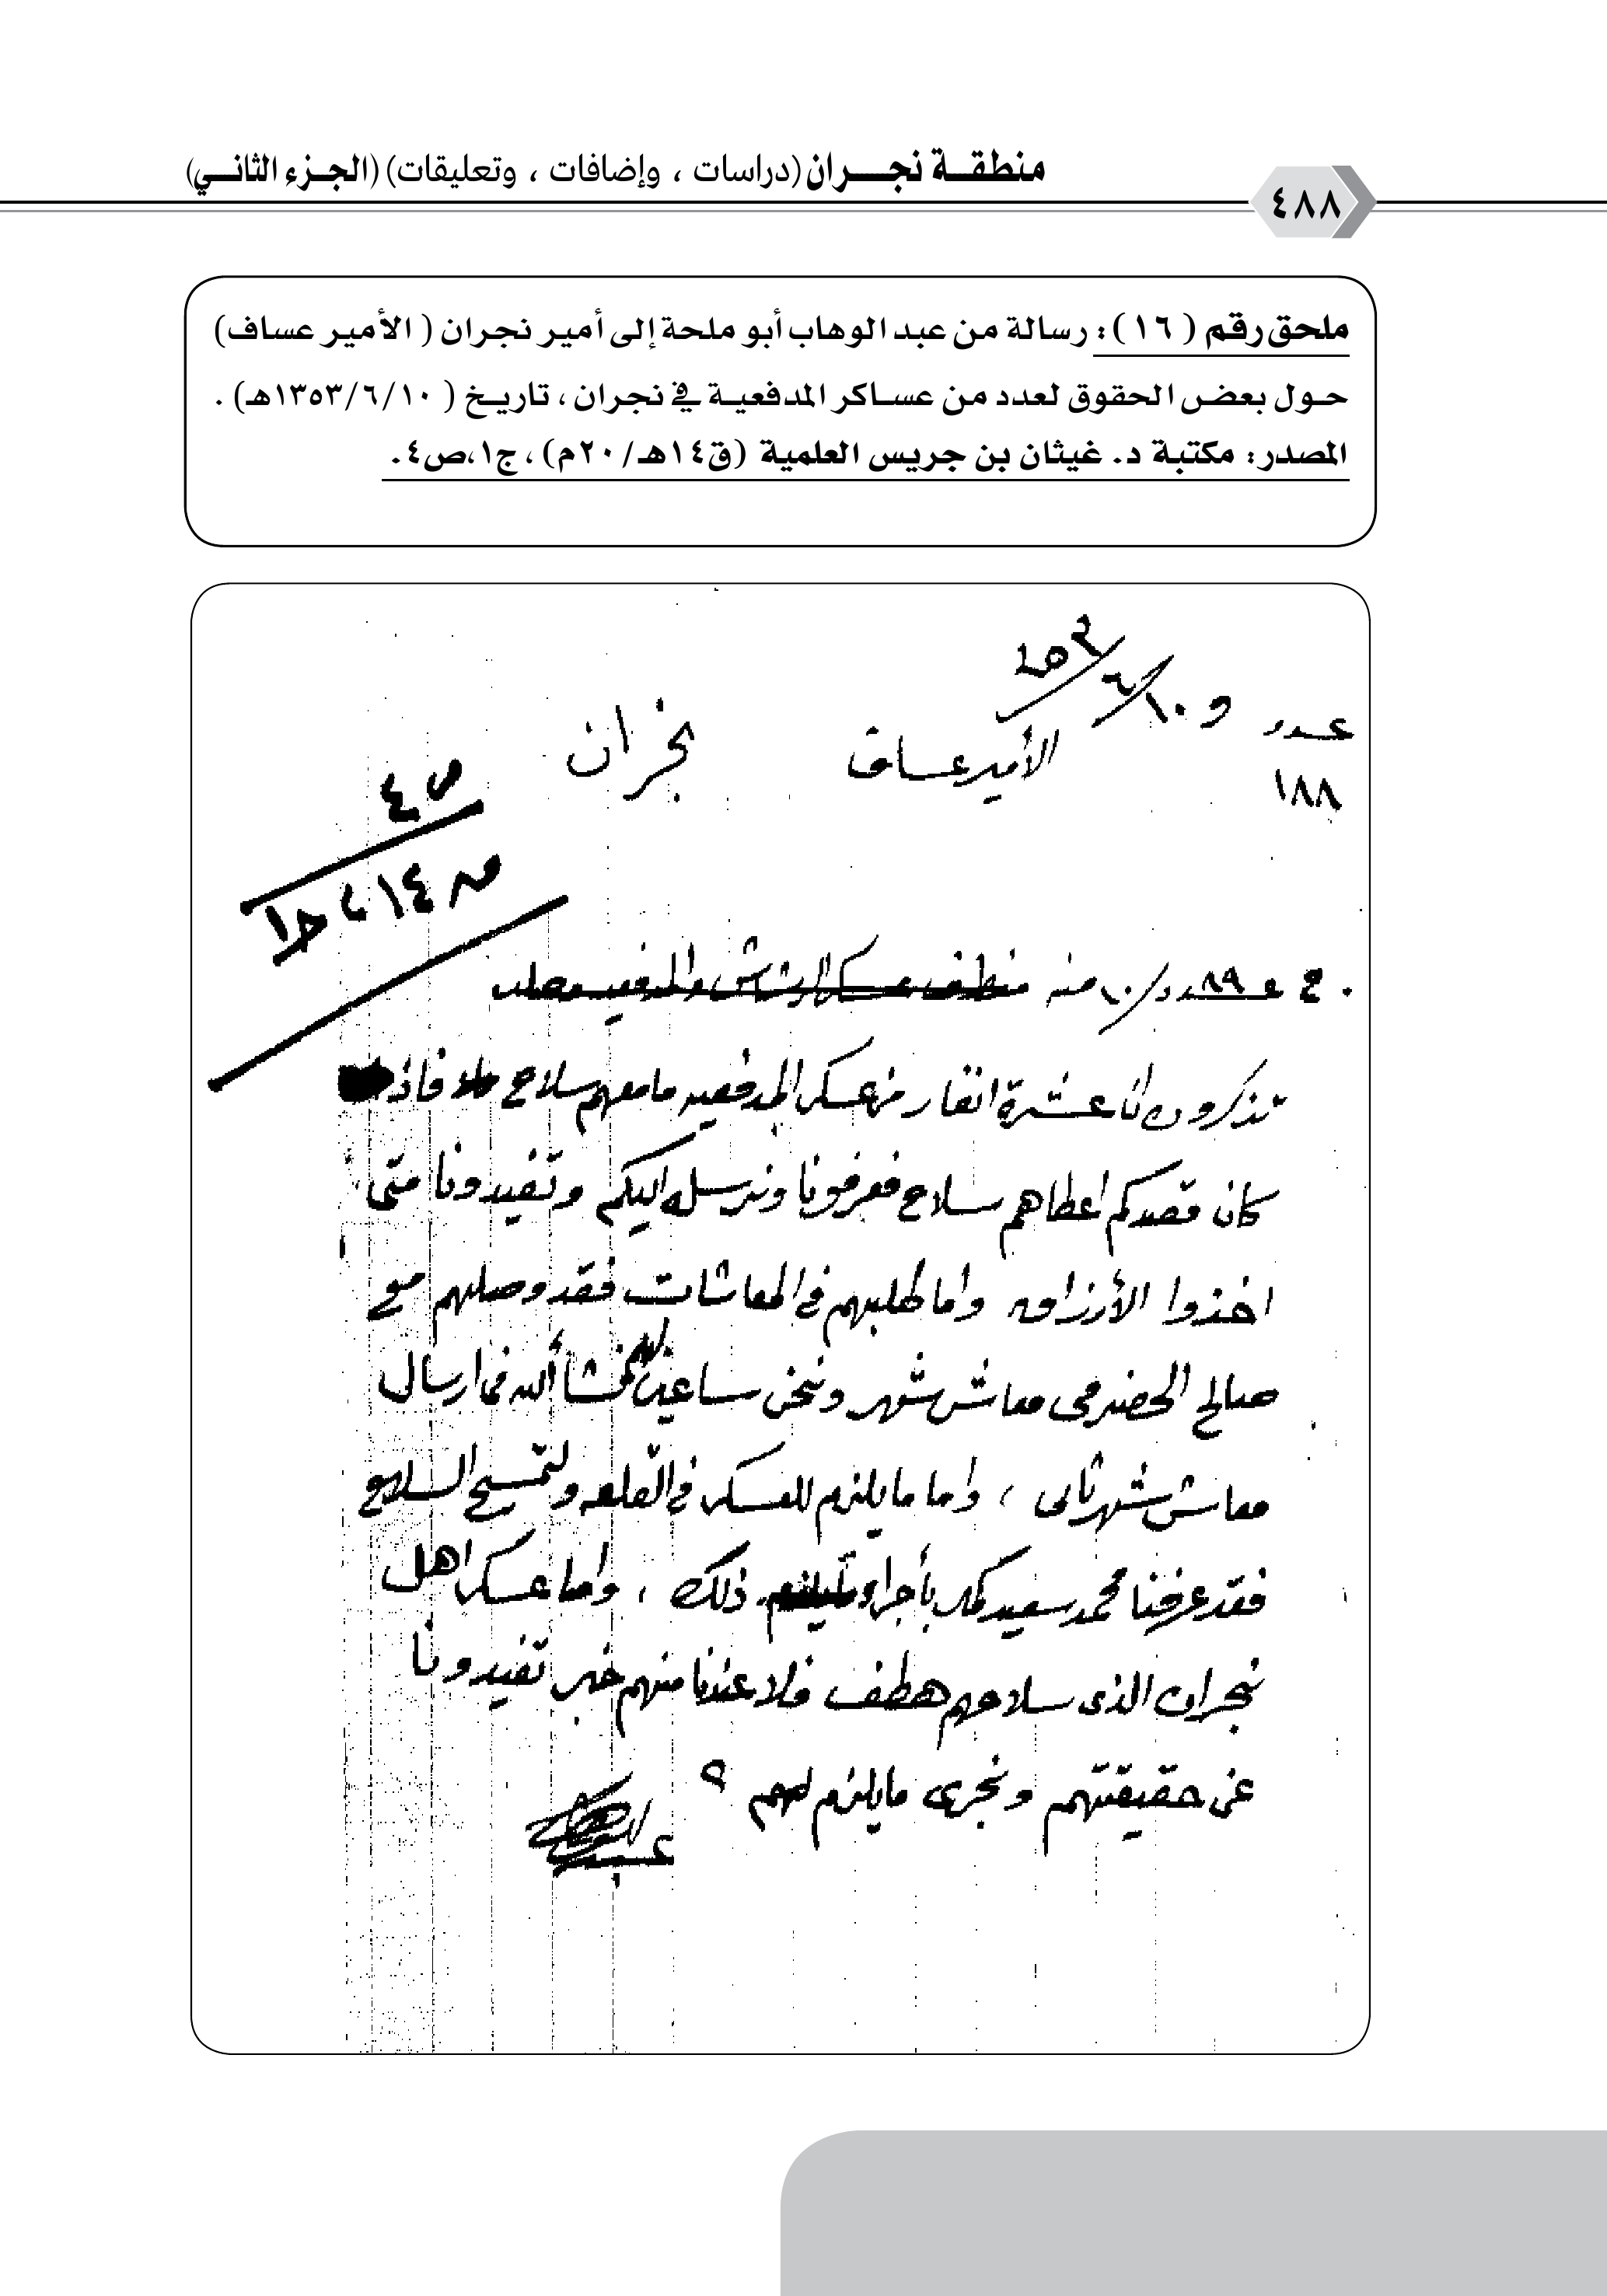 منطقـة نجـــران (دراسات ، وإضافات ، وتعليقات) (الجـزء الثانـي)
٤٨٨
ملحق رقم ( ١٦ ) : رسالة من عبد الوهاب أبو ملحة إلى أمير نجران ( الأمير عساف)
حـول بعض الحقوق لعدد من عساكر المدفعيـة في نجران ، تاريـخ ( ١٣٥٣/٦/١٠هـ) .
المصدر: مكتبة د. غيثان بن جريس العلمية (ق١٤هـ/٢٠م) ، ج١،ص٤.
عدد و ١٠/٦/٣٥٣
١٨٨
الأمير عساف نجران
ص٤
١٤ ج١
ج ٨٩ و ١٠ منه عسكر الرشاش والمدفعيه
تذكرون ان عشرة انفار من عسكر المدفعيه ما معهم سلاح فاذا
كان قصدكم اعطاهم سلاح فعرفونا ونرسله اليكم وتفيدونا متى
اخذوا الأرزاق واما طلبهم في المعاشات فقد وصلهم مع
صالح الحضرمي معاش شهر ونحن ساعين انشأ الله في ارسال
معاش شهر ثاني ، واما ما يلزم للعسكر في القلعه ولتمسيح السلاح
فقد عرفنا محمد سعيد كمال بأجراء ذلك ، واما عسكر اهل
نجران الذي سلاحهم هطف فلا عندنا منهم خبر تفيدونا
عن حقيقتهم ونجري ما يلزم لهم